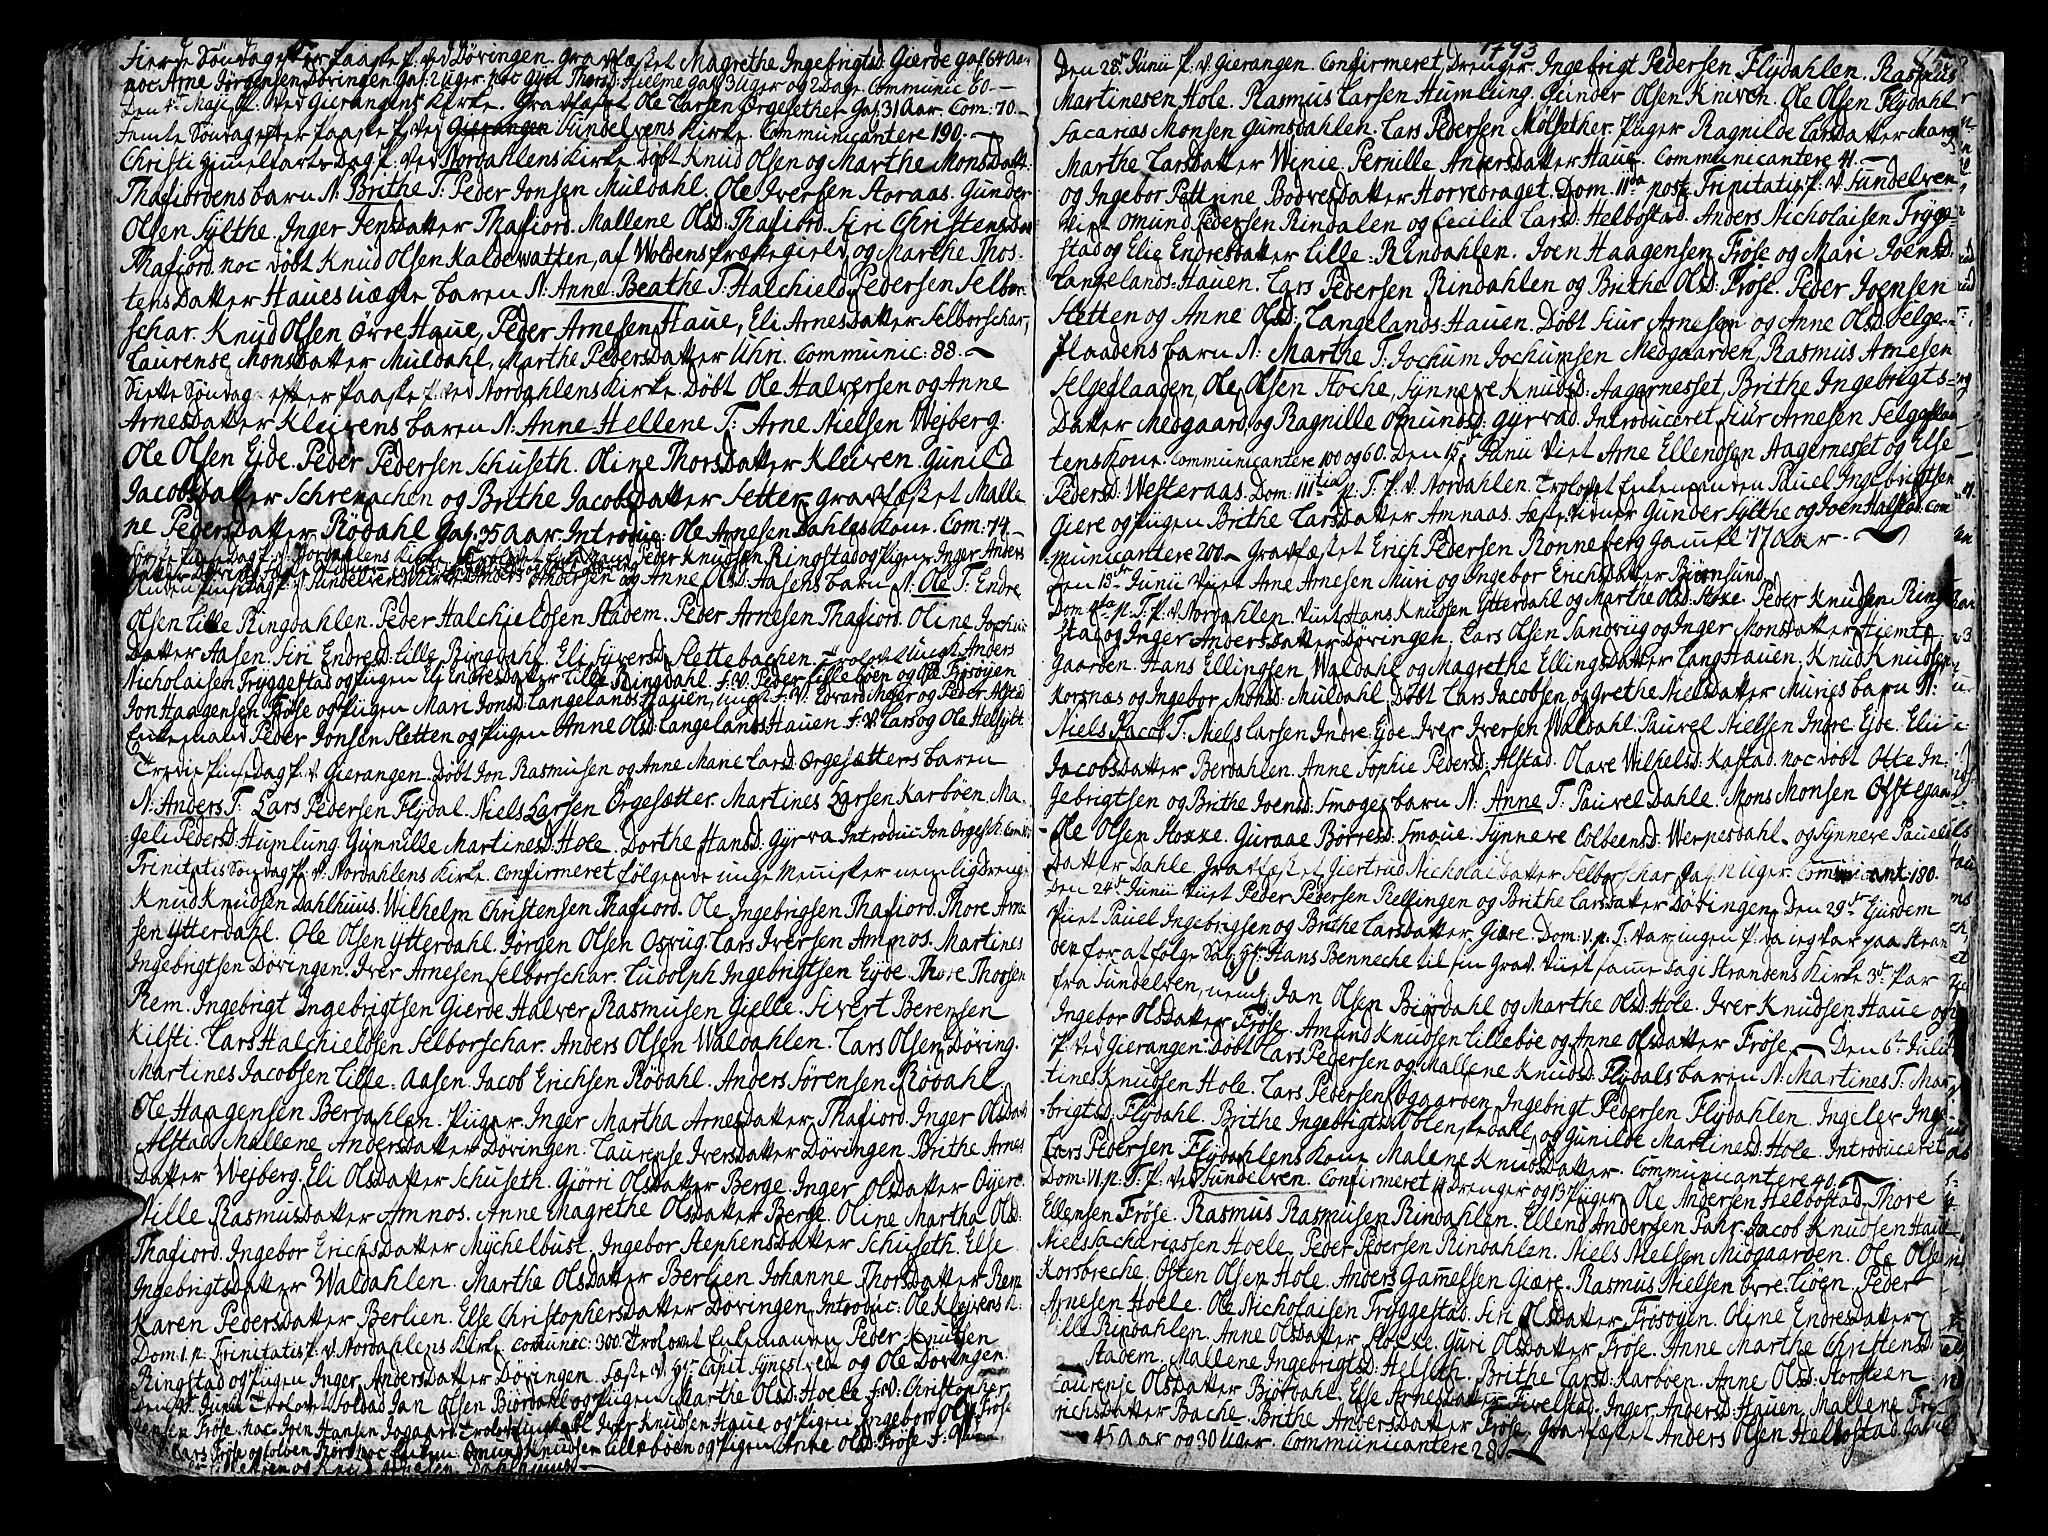 Fierde Søndag efter Paaske P. ved Døvingen. Gravfæstet Magrethe Ingebrigtsd. Gierde gal. 64 Aar
noc Arne Jørgensen Døvingen Gal. 2 Uger noc Gyri Thorsd: Hielme Gal. 3 Uger og 2 Dage Communic 60.
Den 4de Maji P. ved Gierangens Kirke. Gravfæstet Ole Larsen Ørgesether Gal. 31 Aar. Com: 70.
Femte Søndag efter Paaske P. ved Gierangen Sundelvens Kirke. Communicantere 190.
Christi Himelfarts Dag P. ved Nordahlens Kirke. Døbt Knud Olsen og Marthe Monsdatt.
Thafiordens barn N. Brithe T: Peder Jonsen Muldahl. Ole Iversen Storaas. Gunder
Olsen Sylthe. Inger Jensdatter Thafiord. Mallene Olsd: Thafiord. Siri Christensdatt
Thafiord. noc døbt Knud Olsen Kaldevatten, af Woldens Prestegield, og Marthe Thos-
tensdatter Haues uægte barn N: Anne Beathe T: Halchield Pedersen Selbor-
schar. Knud Olsen Øvre Haue, Peder Arnesen Haue, Eli Arnesdatter Selborschar,
Laurense Monsdatter Muldahl, Marthe Pedersdatter Uhri. Communic: 88.
Siette Søndag efter Paaske P. ved Nordahlens Kirke. Døbt Ole Halversen og Anne
Arnesdatter Kleivens barn N: Anne Hellene T: Arne Nielsen Wejberg.
Ole Olsen Eide. Peder Pedersen Schuseth. Oline Thorsdatter Kleiven. Gunild
Jacobsdatter Schrenachen og Brithe Jacobsdatter Setter. Gravfæstet Malle
ne Pedersdatter Rödahl Gal. 35 Aar. Introduc: Ole Arnesen Dahles Kone. Com: 74.
Første Pinsedag P. v. Nordahlens Kirke. Trolovet Enkemand Peder Knudsen Ringstad og Pigen Inger Anders
Anden Pinsedag P. v. Sundelvens Kirke Anders Thorsen og Anne Olsd: Aasens barn N. Ole T: Endre
Olsen Lille Ringdahlen. Peder Halchieldsen Stadem. Peder Arnesen Thafiord. Oline Jochum
Datter Aasen. Siri Endresd: Lille Ringdahl. Eli Siversd Slettebachen. Trolovet Ungk. Anders
Nicholaisen Tryggestad og Pigen Eli Endresdatter Lille Ringdahl. F. V. Peder Lilleböen og Ole Frösöjen
Jon Haagensen Fröse og Pigen Mari Jonsd: Langelands Hauen,
Enkemand Peder Jonsen Sletten og Pigen Anne Olsd: Langelands Hauen. F. V. Lars og Ole Helsæth
Tredie Pinsedag P. v. Gierangen. Døbt Jon Rasmusen og Anne Marie Larsd. Ørgesætters baren
N. Anders T: Lars Pedersen Flydal. Niels Larsen Ørgesætter. Martines Larsen Karböen. Ma-
geli Pedersd: Humlung. Gunnille Martinesd: Hole. Dorthe Hansd: Gyrva. Introduc: Jon Orgesch.
Trinitatis Søndag P. v. Nordahlens Kirke. Confirmeret følgende unge Menisker nemlig dreng
Knud Knudsen Dahlhuus. Wilhelm Christensen Thafiord. Ole Ingebrigtsen Thafiord. Thore Arne
sen Ytterdahl. Ole Olsen Ytterdahl. Jörgen Olsen Osvüg. Lars Iversen Amnos. Martines
Ingebrigtsen Döving. Iver Arnesen Selborschar. Ludolph Ingebrigtsen Ejde. Thore Thorsen
Rem. Ingebrigt Ingebrigtsen Gierde Halver Rasmusen Gielle. Sivert Berensen
Kilsti. Lars Halchieldsen Selborschar. Anders Olsen Waldahlen. Lars Olsen Döving.
Martines Jacobsen Lille-Aasen. Jacob Erichsen Rödahl. Anders Sörensen Rödahl.
Ole Haagensen Berdahlen. Piiger. Inger Martha Arnesdatter Thafiord. Inger Olsdatt
Alstad. Mallene Andersdatter Dövingen. Laurense Iversdatter Dövingen. Brithe Arnes
datter Wejberg. Eli Olsdatter Schuseth. Giörri Olsdatter Berge. Inger Olsdatter Öyere.
Nille Rasmusdatter Amnos. Anne Magrethe Olsdatter Berge. Oline Martha Olsd:
Thafiord. Ingebor Erichsdatter Mychelbust. Ingebor Stephensdatter Schuseth. Else
Ingebrigtsdatter Waldahlen. Marthe Olsdatter Berlien. Johanne Thorsdatter Rem
Karen Pedersdatter Berlien. Else Christophersdatter Dövingen. Introduc: Ole Klejvens K.
Dom: 1. p: Trinitatis P. v. Nordahlens Kirke. Comunic: 300. Trolovet Enkemanden Peder Knudsen
Ringstad og Pigen Inger Andersdatter Dövingen. og Ole Dövingen.
Junii Trolovet Soldad Jan Olsen Biördahl og Pigen Marthe Olsd: Hoele F. V: Christopher
Jensen Fröse. noc Iver Knudsen Haue og Pigen Ingebor Olsd Fröse
Amund Knudsen Lilleböen og Pigen Anne Olsd: Fröse F:
1793
Den 25de Junii P. v. Gierangen. Confirmeret. Drenger. Ingebrigt Pedersen Flydahlen. Rasmus
Martinesen Hole. Rasmus Larsen Humlung. Gunder Olsen Kniven. Ole Olsen Flydahl
Sacarias Monsen Gumsdahlen. Lars Pedersen Mölsether. Piiger Ragnilde Larsdatter
Marthe Larsdatter Winie. Pernille Andersdatter Haue. Communicantere 41.
og Ingebor Pettrine Bodvedsdatter Horvedraget. Dom. IIda post: Trinitatis P. v. Sundelven
Viet Omund Pedersen Rindalen og Cecilia Larsd: Helbostad. Anders Nicholaisen Trygge
stad og Elie Endresdatter Lille-Rindahlen. Joen Haagensen Fröse og Mari Joensd.
Langelands-Hauen. Lars Pedersen Rindahlen og Brithe Olsd: Fröse. Peder Joensen
Sletten og Anne Olsd: Langelands Hauen. Döbt Siur Arnesen og Anne Olsd. Selge-
flaadens barn N: Marthe T: Jochum Jochumsen Medgaarden, Rasmus Arnesen
Selgeflaaen, Ole Olsen Stoche, Synneve Knudsd: Aagernesset, Brithe Ingebrigts-
Datter Medgaard, og Ragnille Omundsd: Gyrvad. Introduceret Siur Arnesen Selgeflaa
tens Kone. Communicantere 100 og 60. Den 15de Junii Viet Arne Ellendsen Aagernesset og Else
Pedersd: Westeraas. Dom: IIItia p. T. P. v. Nordahlen. Trolovet Enkemanden Pauel Ingebrigtsen
Giere og Piigen Brithe Larsdatter Amnaas. Gunder Sylthe og Joen Halstad. Com
municantere 200. Gravfæstet Erich Pedersen Ronneberg Gamel 77 Aar.
Den 19de Junii viet Arne Arnesen Muri og Ingebor Erichsdatter Biörnsund.
Dom: 4ta p. T. P. v. Nordahlen. Viet Hans Knudsen Ytterdahl og Marthe Olsd: Stoxe. Peder Knudsen Ring-
stad og Inger Andersdatter Dövingen. Lars Olsen Sandviig og Inger Monsdatter Hiemte
Gaarden. Hans Ellingsen Waldahl og Magrethe Ellingsdatter Langhauen. Knud Knudsen
Korsnæs og Ingebor Monsd: Muldahl. Döbt Lars Jacobsen og Grethe Nielsdatter Muries barn N:
Niels Jacob T: Niels Larsen Indre-Ejde. Iver Iversen Waldahl. Pauel Nielsen Indre-Ejde. Eli
Jacobsdatter Berdahlen. Anne Sophie Pedersd: Alstad. Olave Wilhelsd: Kastad. noc döbt Otte In-
gebrigtsen og Brithe Joensd: Smoges barn N: Anne T: Pauel Dahle. Mons Monsen Ofstegaar
Ole Olsen Stoxe. Guraae Börresd: Smoue. Synneve Colbeensd: Werpesdahl. og Synneve Pauels
datter Dahle. Gravfæstet Giertrud Nicholaidatter Selborschar Gal. 12 Uger. Communicant. 180.
Den 24de Junii viet Peder Pedersen Rellingen og Brithe Larsdatter Dövingen. Den 29de Ejusdem
Viet Pauel Ingebrigtsen og Brithe Larsdatter Giære. Dom: V. p. T. var ingen P. da jeg var paa Stran
den for at følge Sal: Hr: Hans Benneche til sin Grav. Viet samme Dag i Strandens Kirke 3de Par
fra Sundelven, neml. Jan Olsen Biördahl og Marthe Olsd: Hole. Iver Knudsen Haue og
Ingebor Olsdatter Fröse. Amund Knudsen Lilleböe og Anne Olsdatter Fröse. Den 6te Julii
P. ved Gierangen. Döbt Lars Pedersen og Mallene Knudsd: Flydals baren N: Martines T: Mar
tines Knudsen Hole. Lars Pedersen Ougaarden. Ingebrigt Pedersen Flydahlen. Ingeler Inge
brigtsd: Flydahl. Brithe Ingebrigtsd: Oplenskedahl, og Gunilde Martinesd: Hole. Introduceret
Lars Pedersen Flydahlens Kone Malene Knudsdatter. Communicantere 40.
Dom: VI. p. T. P. ved Sundelven. Confirmeret 14 Drenger og 13 Piiger. Ole Andersen Helbostad. Thore
Ellensen Fröse. Rasmus Rasmusen Rindahlen. Ellend Andersen Fahr. Jacob Knudsen Haue
Niels Sachariassen Hoele. Peder Pedersen Rindahlen. Niels Nielsen Midgaarden. Ole Olsen
Korsbreche. Osten Olsen Hole. Anders Gamelsen Giære. Rasmus Nielsen Øvre-Liöen. Peder
Arnesen Hoele. Ole Nicholaisen Tryggestad. Siri Olsdatter Frösöyen. Oline Endresdatter
Lille Rindahlen. Anne Olsdatter Stoxe. Guri Olsdatter Fröse. Anne Marthe Christensd:
Stadem. Mallene Ingebrigtsd: Helseth. Brithe Larsd: Karböen. Anne Olsd: Storsteen
Laurense Olsdatter Biördahl. Else Arnesdatter Fivelstad. Inger Andersd: Hauen. Mallene
richsdatter Bache. Brithe Andersdatter Fröse. Gravfæstet Anders Olsen Helbostad. Gamel
45 Aar og 30 Uger. Communicantere 28